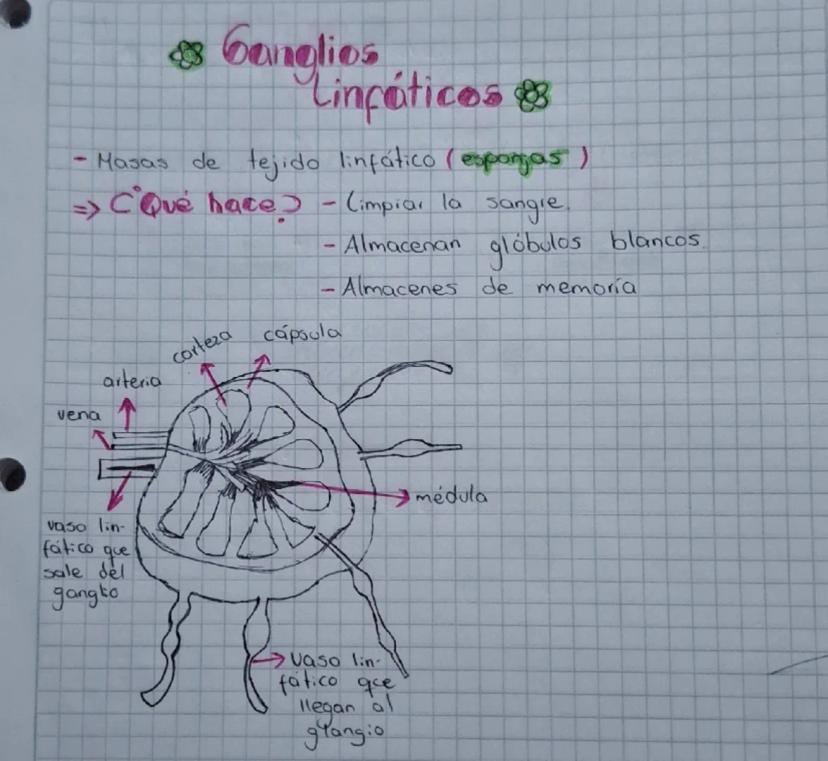 Ganglios
Linfáticos
- Masas de tejido linfático (esponjas)
=> ¿Qué hace? - Limpiar la sangre.
- Almacenan glóbulos blancos.
- Almacenes de memoria
corteza
cápsula
arteria
vena
médula
vaso lin-
fático que
sale del
gangko
vaso lin-
fático que
llegan al
gtangio